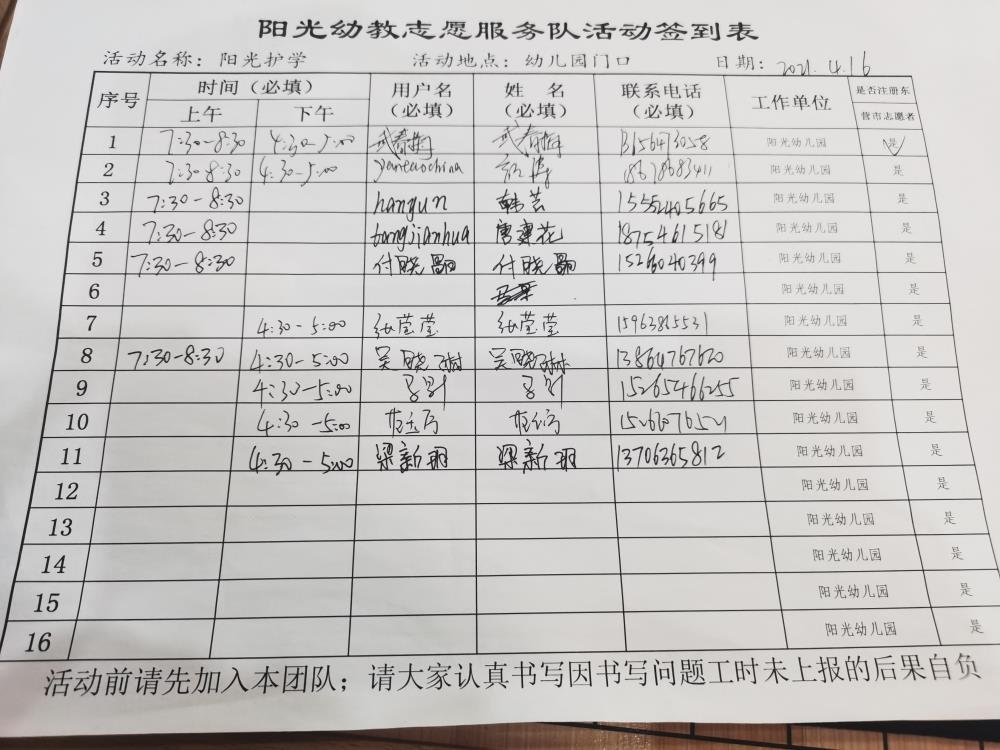 阳光幼教志愿服务队活动签到表
活动名称：阳光护学 活动地点：幼儿园门口 日期：2021.4.16
序号 时间（必填） 用户名（必填） 姓 名（必填） 联系电话（必填） 工作单位 是否注册东营市志愿者
上午 下午
1 7:30-8:30 4:30-5:00 阳光幼儿园 是
2 7:30-8:30 4:30-5:00 阳光幼儿园 是
3 7:30-8:30 hanyun 韩芸 15552405665 阳光幼儿园 是
4 7:30-8:30 tangjianhua 唐建花 18754615181 阳光幼儿园 是
5 7:30-8:30 付晓 付晓 15266040399 阳光幼儿园 是
6 阳光幼儿园 是
7 4:30-5:00 张莹莹 张莹莹 15963815531 阳光幼儿园 是
8 7:30-8:30 4:30-5:00 吴晓琳 吴晓琳 13864767620 阳光幼儿园 是
9 4:30-5:00 15265466255 阳光幼儿园 是
10 4:30-5:00 阳光幼儿园 是
11 4:30-5:00 梁新明 梁新明 13706365812 阳光幼儿园 是
12 阳光幼儿园 是
13 阳光幼儿园 是
14 阳光幼儿园 是
15 阳光幼儿园 是
16 阳光幼儿园 是
活动前请先加入本团队；请大家认真书写因书写问题工时未上报的后果自负